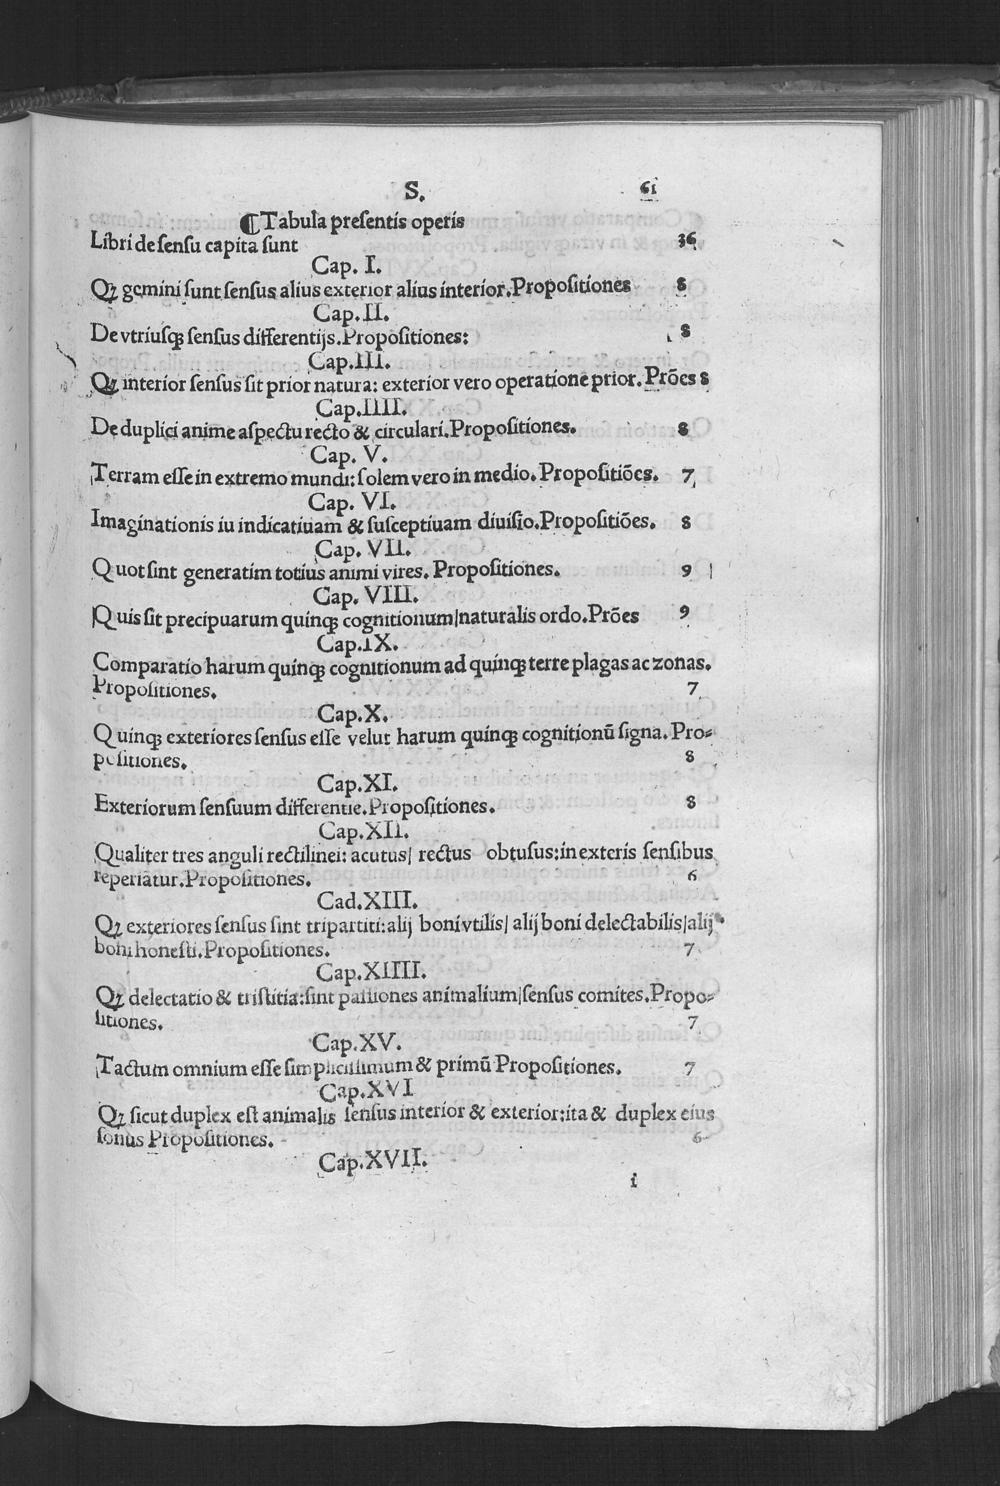 S. 61
¶Tabula preſentis operis
Libri de ſenſu capita ſunt 36
Cap. I.
Qꝫ gemini ſunt ſenſus alius exterior alius interior. Propoſitiones 8
Cap. II.
De vtriuſqꝫ ſenſus differentijs. Propoſitiones: 8
Cap. III.
Qꝫ interior ſenſus ſit prior natura: exterior vero operatione prior. Prões 8
Cap. IIII.
De duplici anime aſpectu recto & circulari. Propoſitiones. 8
Cap. V.
Terram eſſe in extremo mundi: ſolem vero in medio. Propoſitiões. 7
Cap. VI.
Imaginationis iu indicatiuam & ſuſceptiuam diuiſio. Propoſitiões. 8
Cap. VII.
Quot ſint generatim totius animi vires. Propoſitiones. 9
Cap. VIII.
Quis ſit precipuarum quinqꝫ cognitionum|naturalis ordo. Prões 9
Cap. IX.
Comparatio harum quinqꝫ cognitionum ad quinqꝫ terre plagas ac zonas.
Propoſitiones. 7
Cap. X.
Quinqꝫ exteriores ſenſus eſſe velut harum quinqꝫ cognitionū ſigna. Pro⸗
poſitiones. 8
Cap. XI.
Exteriorum ſenſuum differentie. Propoſitiones. 8
Cap. XII.
Qualiter tres anguli rectilinei: acutus| rectus obtuſus: in exteris ſenſibus
reperiatur. Propoſitiones. 6
Cad. XIII.
Qꝫ exteriores ſenſus ſint tripartiti: alij boni vtilis| alij boni delectabilis|alij
boni honeſti. Propoſitiones. 7
Cap. XIIII.
Qꝫ delectatio & triſtitia: ſint paſſiones animalium|ſenſus comites. Propo⸗
ſitiones. 7
Cap. XV.
Tactum omnium eſſe ſimpliciſſimum & primū Propoſitiones. 7
Cap. XVI
Qꝫ ſicut duplex eſt animalis ſenſus interior & exterior: ita & duplex eius
ſonus Propoſitiones. 6
Cap. XVII.
i